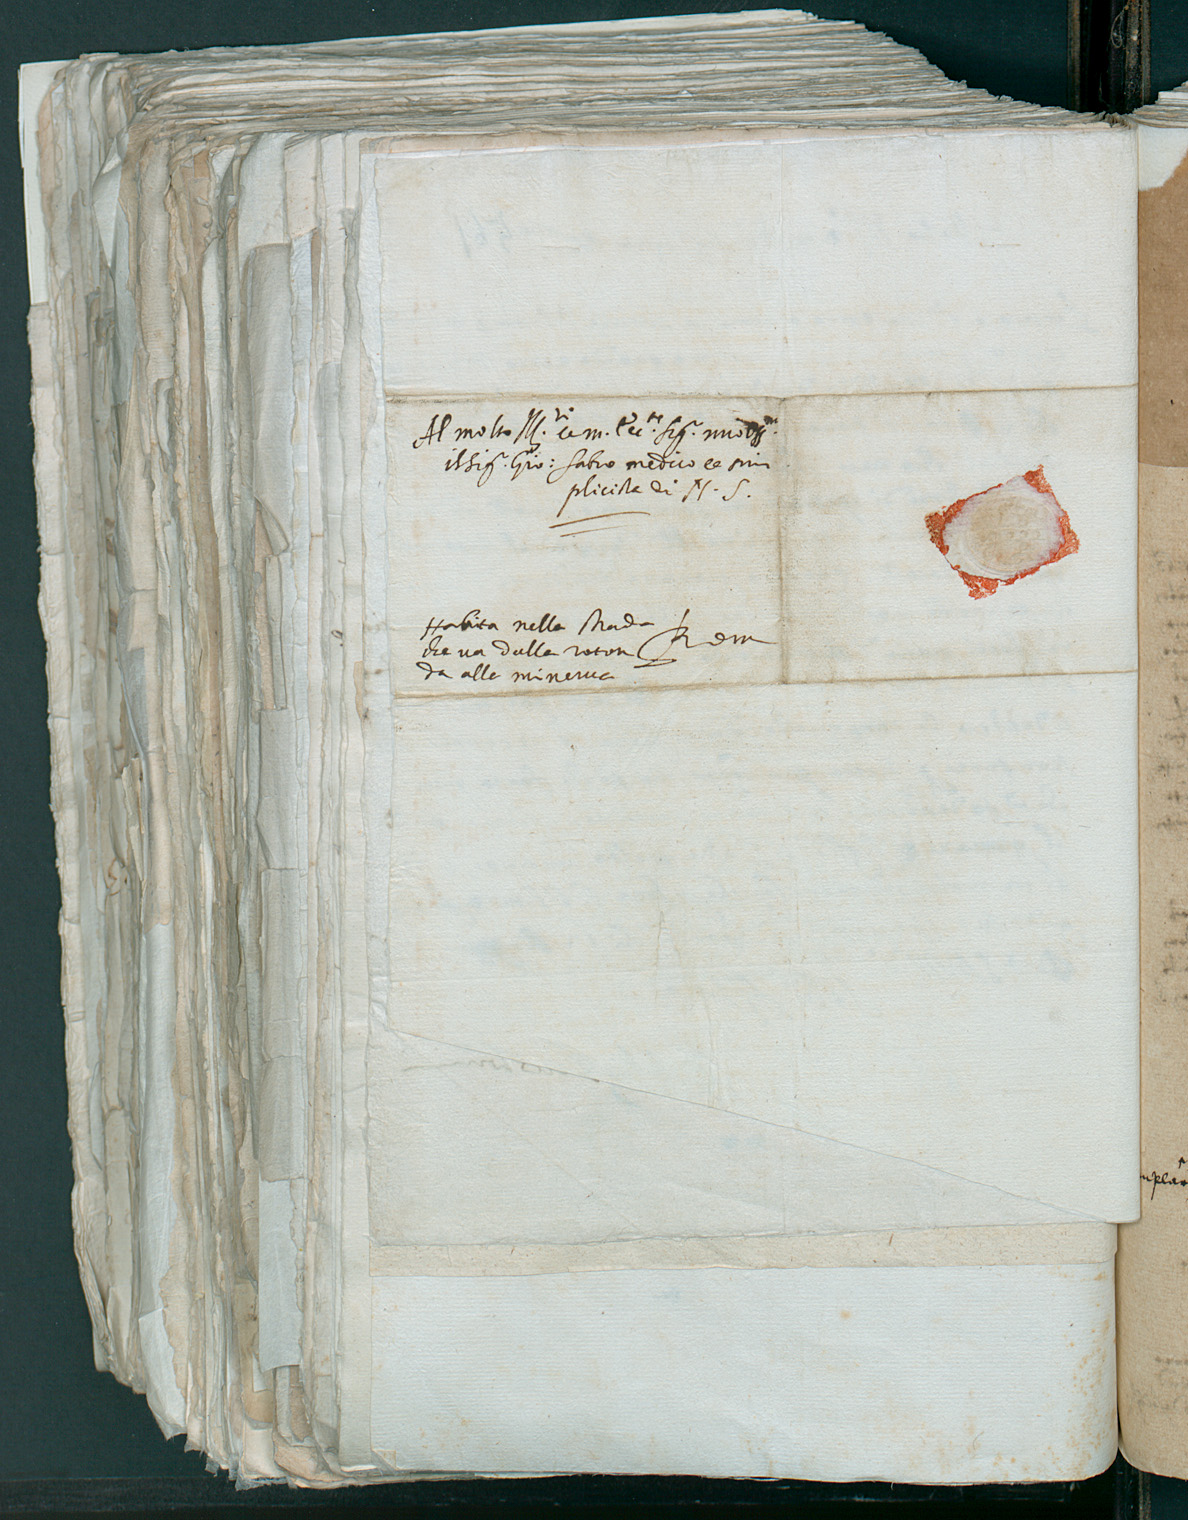 Al molto Ill.re et m. Ecc.te sig.
il Sig. Gio: fabro medico et sim
plicista di N. S.
Habita nella strada
che va dalla roton
da alla minerva
Roma